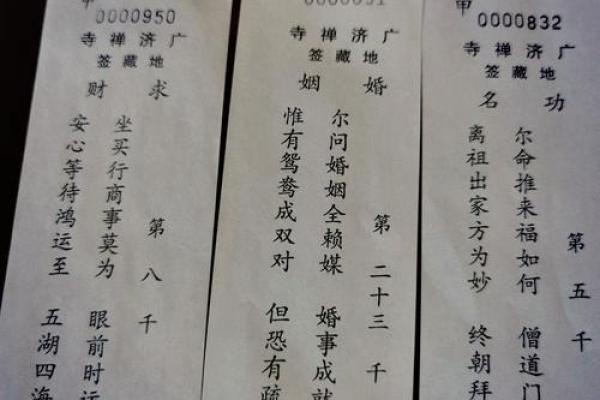 0000950
广济禅寺
地藏签
求财
第八千
坐买行商事莫为 眼前时运
安心等待鸿运至 五湖四海
广济禅寺
地藏签
婚姻
第二十三千
尔问婚姻全赖媒 婚事成就
惟有鸳鸯成双对 但恐有疏
甲
0000832
广济禅寺
地藏签
功名
第五千
尔命推来福如何 僧道门
离祖出家方为妙 终朝拜